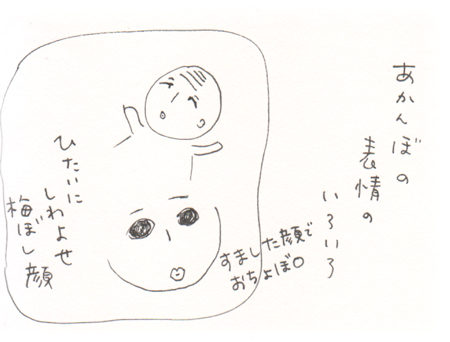 あかんぼの
表情の
いろいろ
ひたいに
しわよせ
梅ぼし顔
すました顔で
おちょぼ口